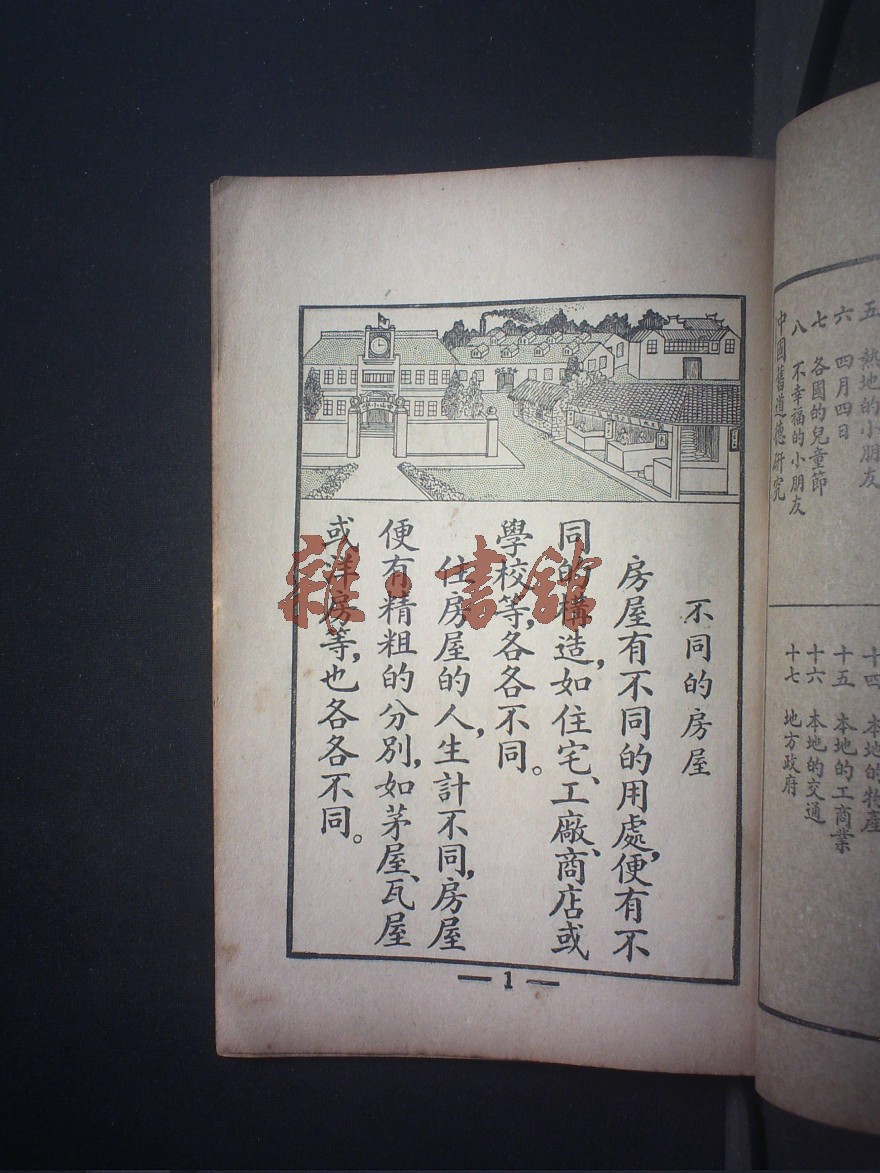 不同的房屋
房屋有不同的用處,便有不
同的構造,如住宅、工廠、商店或
學校等,各各不同。
住房屋的人,生計不同,房屋
便有精粗的分別,如茅屋、瓦屋
或洋房等,也各各不同。
1
五 熱地的小朋友
六 四月四日
七 各國的兒童節
八 不幸福的小朋友
中國舊道德研究
十四 本地的物產
十五 本地的工商業
十六 本地的交通
十七 地方政府
雜·書館